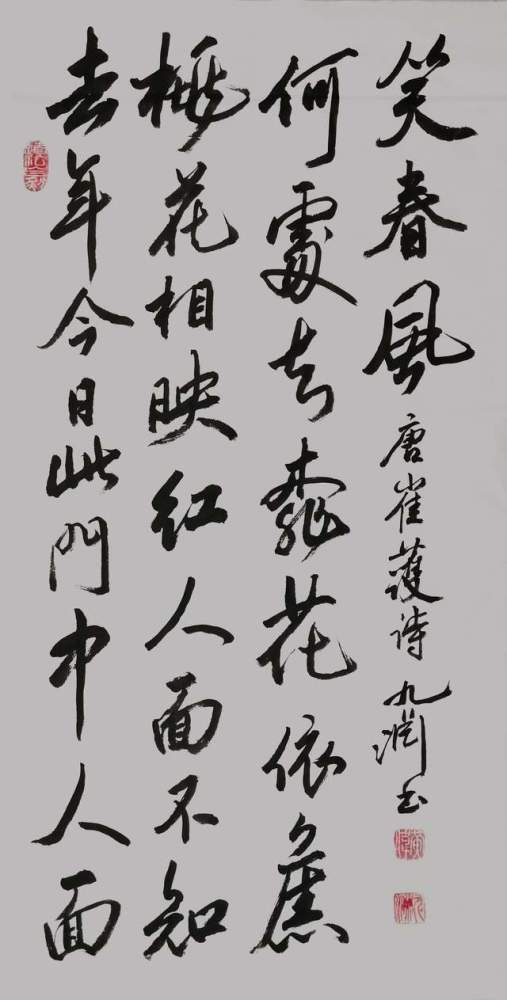 去年今日此門中人面
桃花相映红人面不知
何處去桃花依舊
笑春風
唐崔護诗 九 书